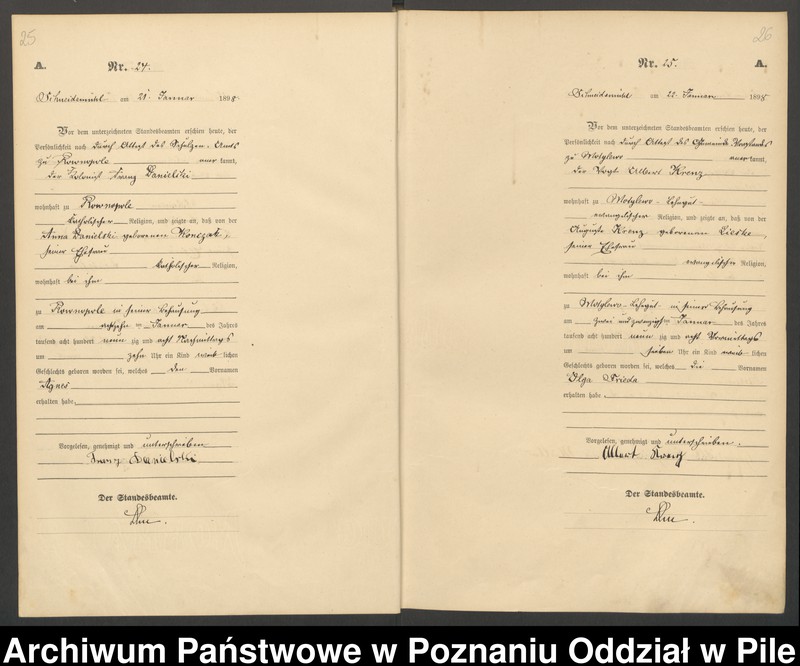 25
A.
Nr. 24.
Schneidemühl am 21. Januar 1898.
Vor dem unterzeichneten Standesbeamten erschien heute, der
Persönlichkeit nach durch Attest des Schulzen-Amts
zu Rownopole anerkannt,
der Kolonist Franz Danielski
wohnhaft zu Rownopole
katholischer Religion, und zeigte an, daß von der
Anna Danielski geborenen
seiner Ehefrau
katholischer Religion,
wohnhaft bei ihm
zu Rownopole in seiner Behausung
am achtzehn ten Januar des Jahres
tausend acht hundert neun zig und acht Nachmittags
um zehn Uhr ein Kind weib lichen
Geschlechts geboren worden sei, welches den Vornamen
Agnes
erhalten habe.
Vorgelesen, genehmigt und unterschrieben
Franz Danielski
Der Standesbeamte.
26
Nr. 25.
A.
Schneidemühl am 22. Januar 1898
Vor dem unterzeichneten Standesbeamten erschien heute, der
Persönlichkeit nach durch Attest des Gemeinde Vorstands
zu Motylewo anerkannt,
der Vogt Albert Krenz
wohnhaft zu Motylewo-Lehngut
evangelischer Religion, und zeigte an, daß von der
Auguste Krenz geborenen Lieske,
seiner Ehefrau
evangelischer Religion,
wohnhaft bei ihm
zu Motylewo-Lehngut in seiner Behausung
am zwei und zwanzigsten Januar des Jahres
tausend acht hundert neun zig und acht Vormittags
um sieben Uhr ein Kind weib lichen
Geschlechts geboren worden sei, welches die Vornamen
Olga Frieda
erhalten habe.
Vorgelesen, genehmigt und unterschrieben.
Albert Krenz
Der Standesbeamte.
Archiwum Państwowe w Poznaniu Oddział w Pile